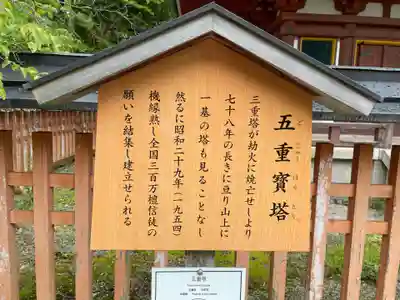 五重寳塔
ご じゅう ほう とう
三重塔が劫火に焼亡せしより
七十八年の長きに亘り山上に
一基の塔も見ることなし
然るに昭和二十九年(一九五四)
機縁熟し全国三百万檀信徒の
願いを結集し建立せられる
五重塔